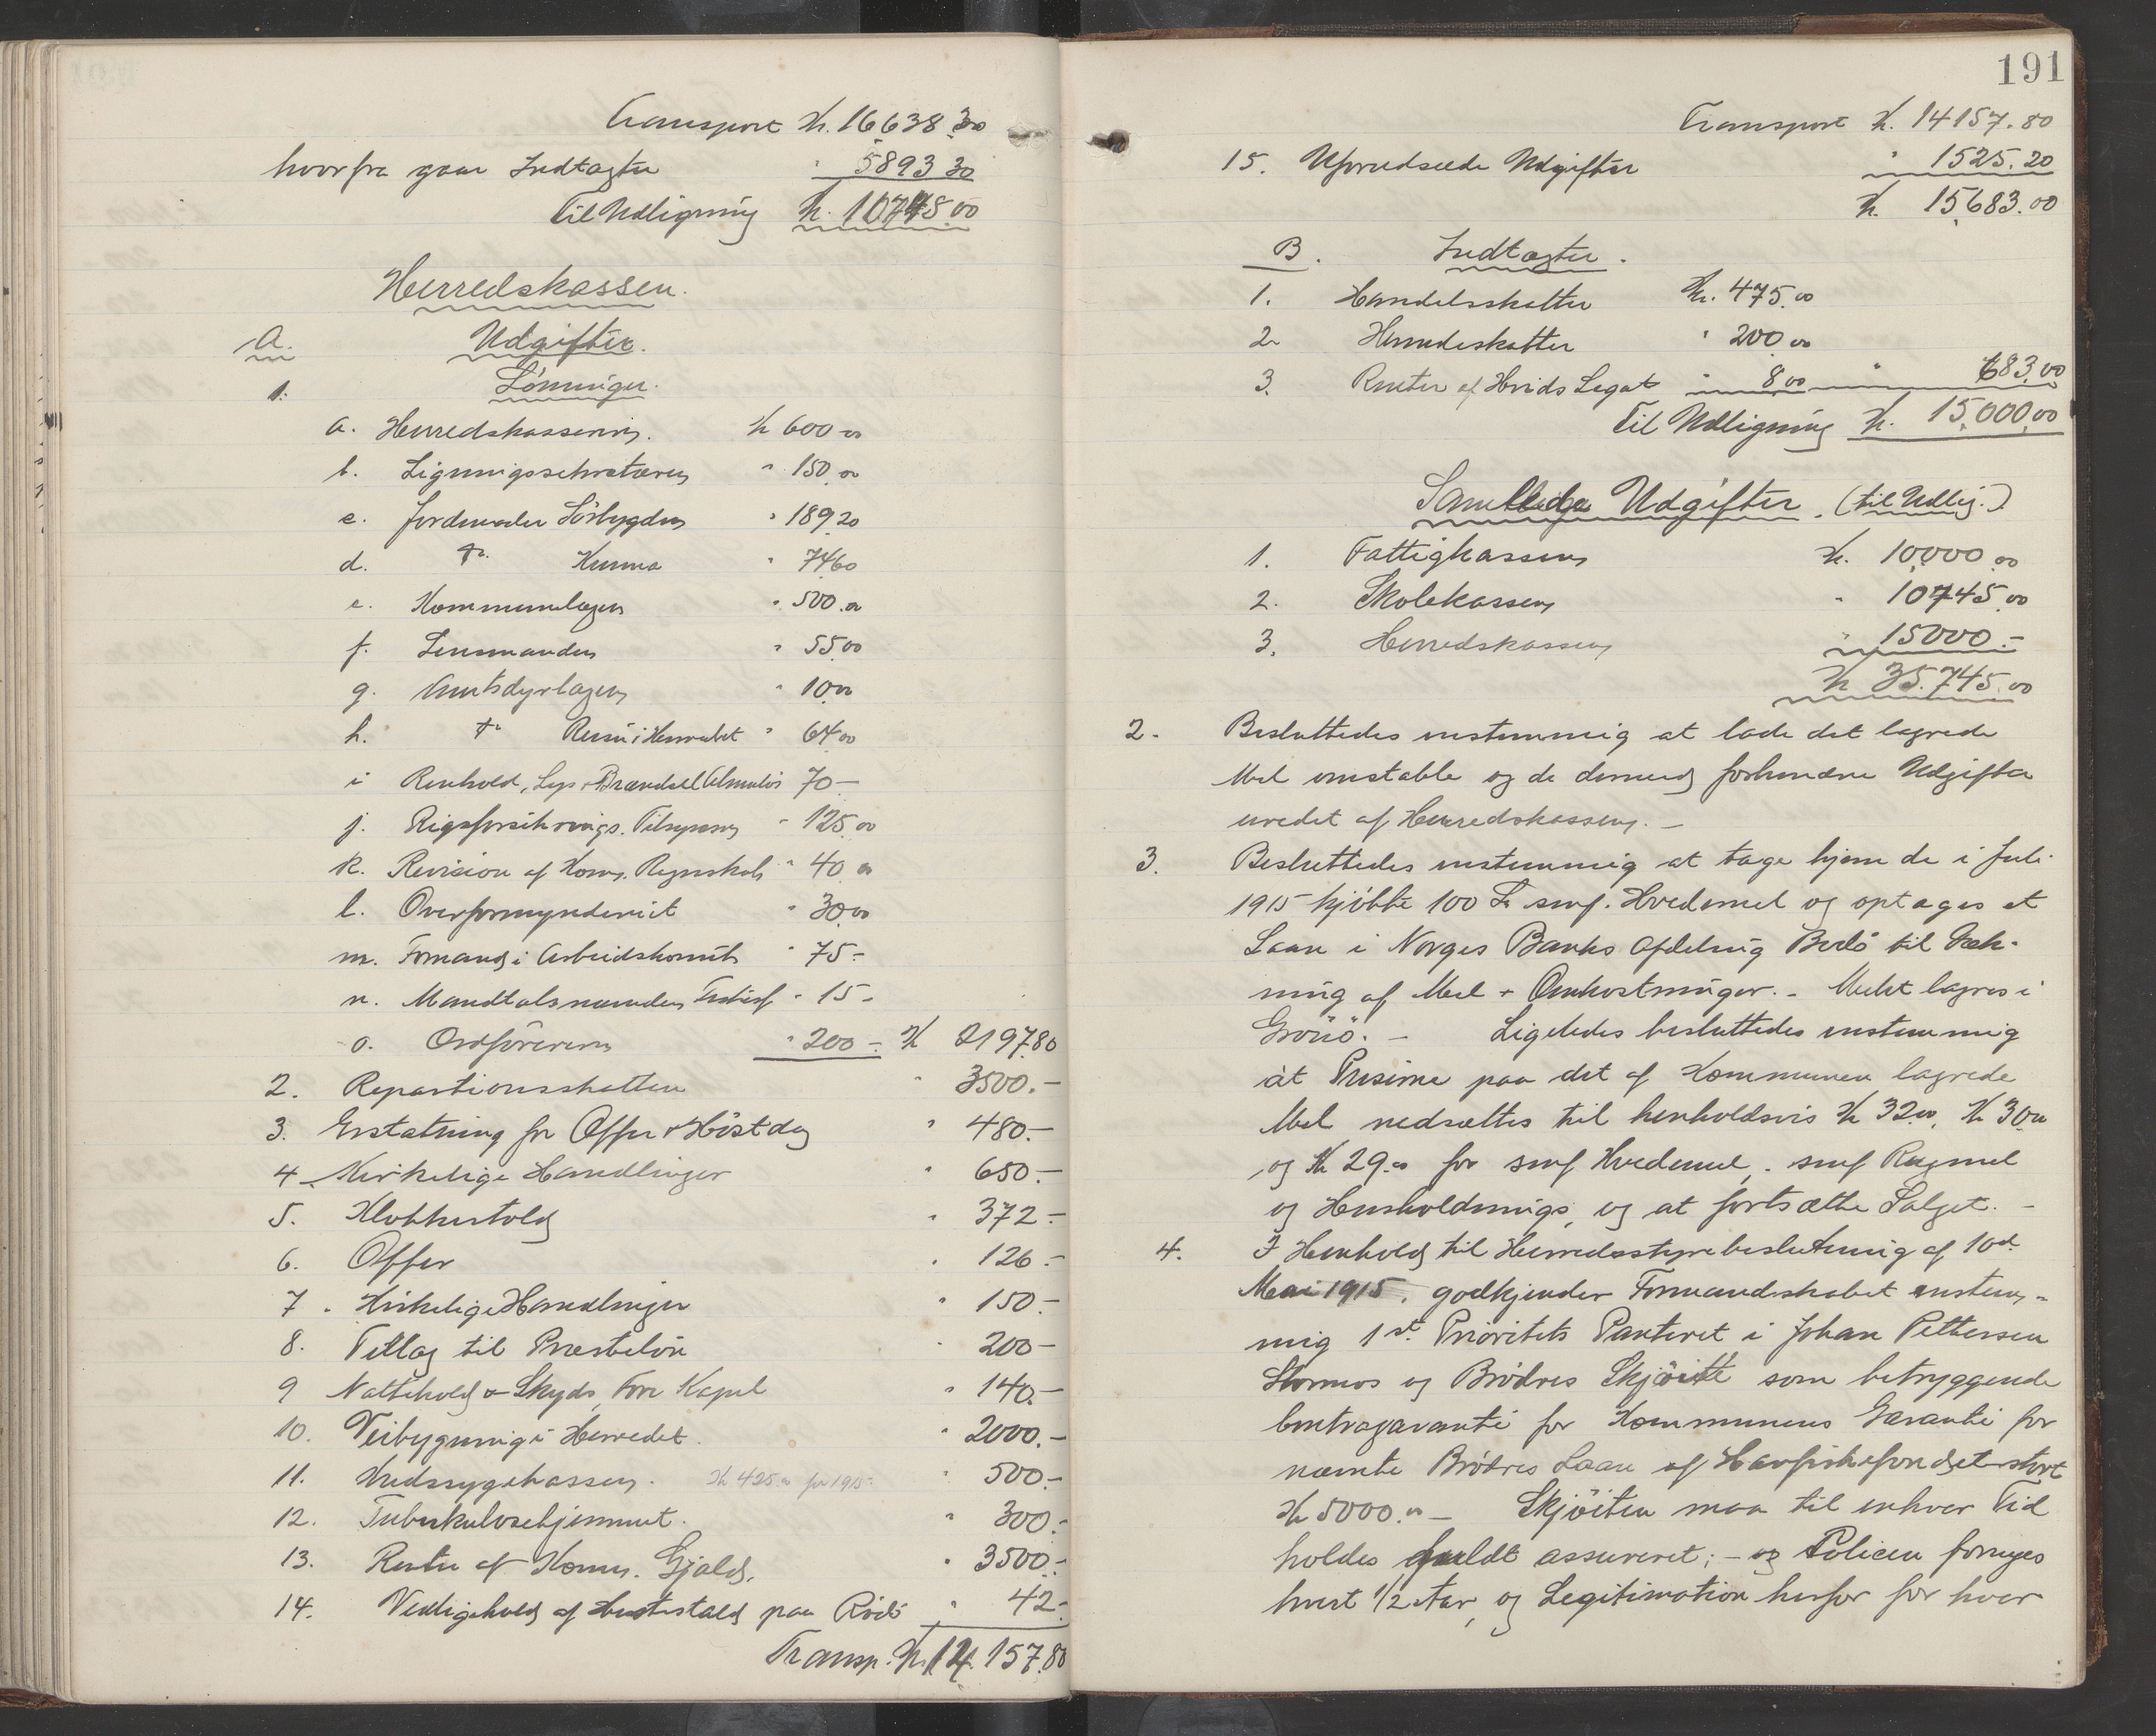 Transport Kr. 16638 30
hvorfra gaar Indtægter " 5893 30
Til Udligning Kr. 10745.00
Herredskassen.
A. Udgifter.
1. Lönninger.
a. Herredskassereren. Kr 600 00
b. Ligningssekretæren " 150,00
c. Jordmoder Sörbygden " 189,20
d. do. Kunna " 74 60
e. Kommunelægen " 500.00
f. Lensmanden " 55 00
g. Amtsdyrlægen " 10 00
h. do Reiser i Herredet " 64 00
i Renhold, Lys & Brændsel 70 –
j. Rigsforsikrings. Tilsynsm " 125.00
k. Revision af Kom. Regnskab " 40 00
l. Overformynderiet " 30 00
m. Formand i Arbeidskomite " 75 –
n. Mandtalsnævnden " 15 –
o. Ordföreren " 200 – Kr 2197 80
2. Repartionsskatten " 3500.–
3. Erstatning for Offer & Höstdag " 480.–
4. Kirkelige Handlinger " 650.–
5. Klokkertold " 372 –
6. Offer " 126 –
7. Kirkelige Handlinger " 150 –
8. Tillæg til Prestelön " 200 –
9 Nattehold & Skyds, Tore Kapel " 140.–
10. Veibygning i Herredet. " 2000.–
11. Kredssygekassen. Kr 425.00 for 1915 " 500.–
12. Tuberkulosehjemmet. " 300.–
13. Renter af Komm. Gjæld. " 3500.–
14. Vedligehold af Hestestald paa Rödö " 42 –
Transp. Kr. 14.157.80
191
Transport Kr. 14157.80
15. Uforudseede Udgifter " 1525.20
Kr. 15683.00
B. Indtægter.
1. Handelsskatter Kr. 475.00
2 Hundeskatter " 200 00
3. Renter af Hvids Legat " 8 00 " 683.00
Til Udligning Kr. 15,000.00
Samtlige Udgifter. (til Udlig.)
1. Fattigkassen Kr. 10000 00
2. Skolekassen " 10745,00
3. Herredskassen " 15000.–
Kr 35.745.00
2. Besluttedes enstemmig at lade det lagrede
Mel omstable og de dermed forbundne Udgifter
uredet af Herredskassen. –
3. Besluttedes enstemmig at tage hjem de i Juli
1915 kjöbte 100 Sk smf. Hvedemel og optages et
Laan i Norges Banks Afdeling Bodö til Dæk-
ning af Mel & Omkostninger. – Melet lagres i
Grönö. – Ligeledes besluttedes enstemmig
at Priserne paa det af Kommunen lagrede
Mel nedsættes til henholdsvis Kr 32.00, Kr 30.00
og Kr 29.00 for smf Hvedemel, smf Rugmel
og Husholdnings, og at fortsætte Salget. –
4. I Henhold til Herredsstyrebeslutning af 10de
Mai 1915, godkjender Formandskabet enstem-
mig 1st Prioritets Panteret i Johan Pettersen
Stormos og Brödres Skjöite som betryggende
kontragaranti for Kommunens Garanti for
nævnte Brödres Laan af Havfiskefondet stort
Kr 5000.00 – Skjöiten maa til enhver Tid
holdes fuldt assureret; – og Policen fornyes
hvert 1/2 Aar, og Legitimation herfor for hver